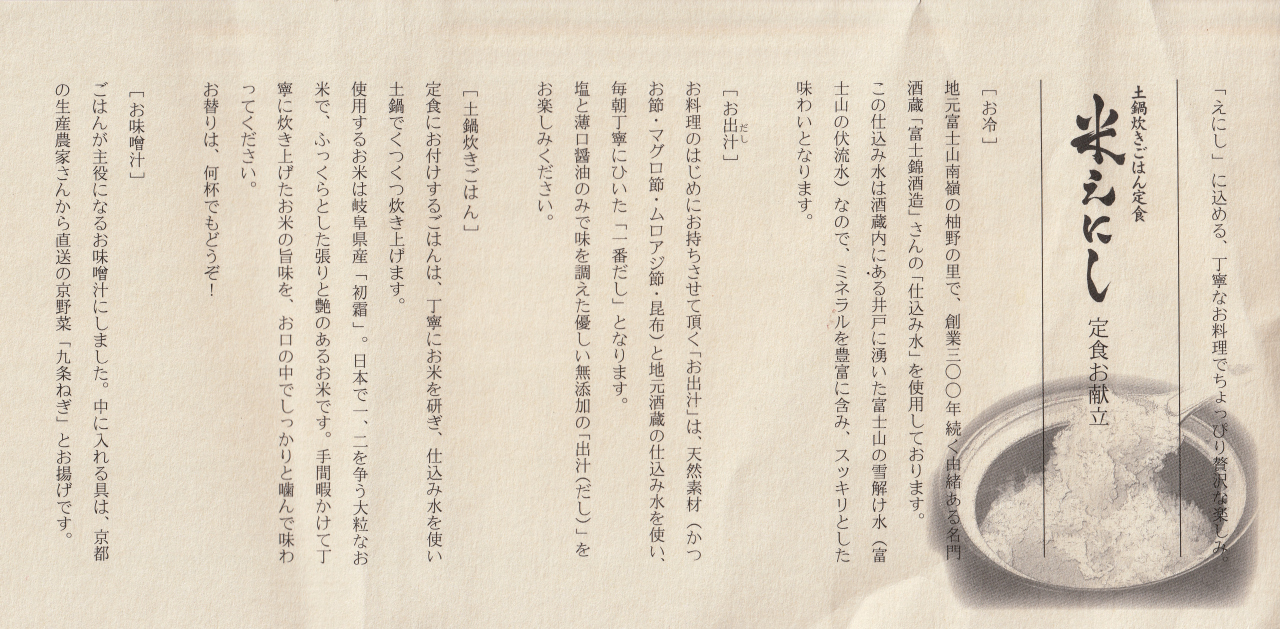 「えにし」に込める、丁寧なお料理でちょっぴり贅沢な楽しみ。
土鍋炊きごはん定食
米えにし 定食お献立
［お冷］
地元富士山南嶺の柚野の里で、創業三〇〇年続く由緒ある名門
酒蔵「富士錦酒造」さんの「仕込み水」を使用しております。
この仕込み水は酒蔵内にある井戸に湧いた富士山の雪解け水（富
士山の伏流水）なので、ミネラルを豊富に含み、スッキリとした
味わいとなります。
［お出汁］
だし
お料理のはじめにお持ちさせて頂く「お出汁」は、天然素材（かつ
お節・マグロ節・ムロアジ節・昆布）と地元酒蔵の仕込み水を使い、
毎朝丁寧にひいた「一番だし」となります。
塩と薄口醤油のみで味を調えた優しい無添加の「出汁（だし）」を
お楽しみください。
［土鍋炊きごはん］
定食にお付けするごはんは、丁寧にお米を研ぎ、仕込み水を使い
土鍋でくつくつ炊き上げます。
使用するお米は岐阜県産「初霜」。日本で一、二を争う大粒なお
米で、ふっくらとした張りと艶のあるお米です。手間暇かけて丁
寧に炊き上げたお米の旨味を、お口の中でしっかりと噛んで味わ
ってください。
お替りは、何杯でもどうぞ！
［お味噌汁］
ごはんが主役になるお味噌汁にしました。中に入れる具は、京都
の生産農家さんから直送の京野菜「九条ねぎ」とお揚げです。